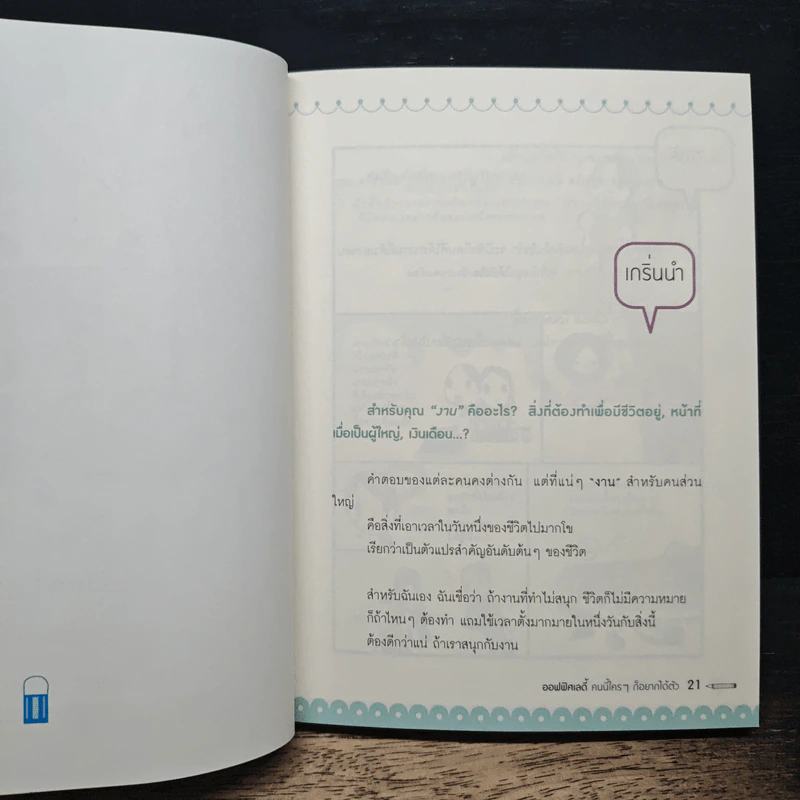 เกริ่นนำ
สำหรับคุณ "งาน" คืออะไร? สิ่งที่ต้องทำเพื่อมีชีวิตอยู่, หน้าที่
เมื่อเป็นผู้ใหญ่, เงินเดือน...?
คำตอบของแต่ละคนคงต่างกัน แต่ที่แน่ๆ "งาน" สำหรับคนส่วน
ใหญ่
คือสิ่งที่เอาเวลาในวันหนึ่งของชีวิตไปมากโข
เรียกว่าเป็นตัวแปรสำคัญอันดับต้นๆ ของชีวิต
สำหรับฉันเอง ฉันเชื่อว่า ถ้างานที่ทำไม่สนุก ชีวิตก็ไม่มีความหมาย
ก็ถ้าไหนๆ ต้องทำ แถมใช้เวลาตั้งมากมายในหนึ่งวันกับสิ่งนี้
ต้องดีกว่าแน่ ถ้าเราสนุกกับงาน
ออฟฟิศเลดี้ คนนี้ใครๆ ก็อยากได้ตัว 21